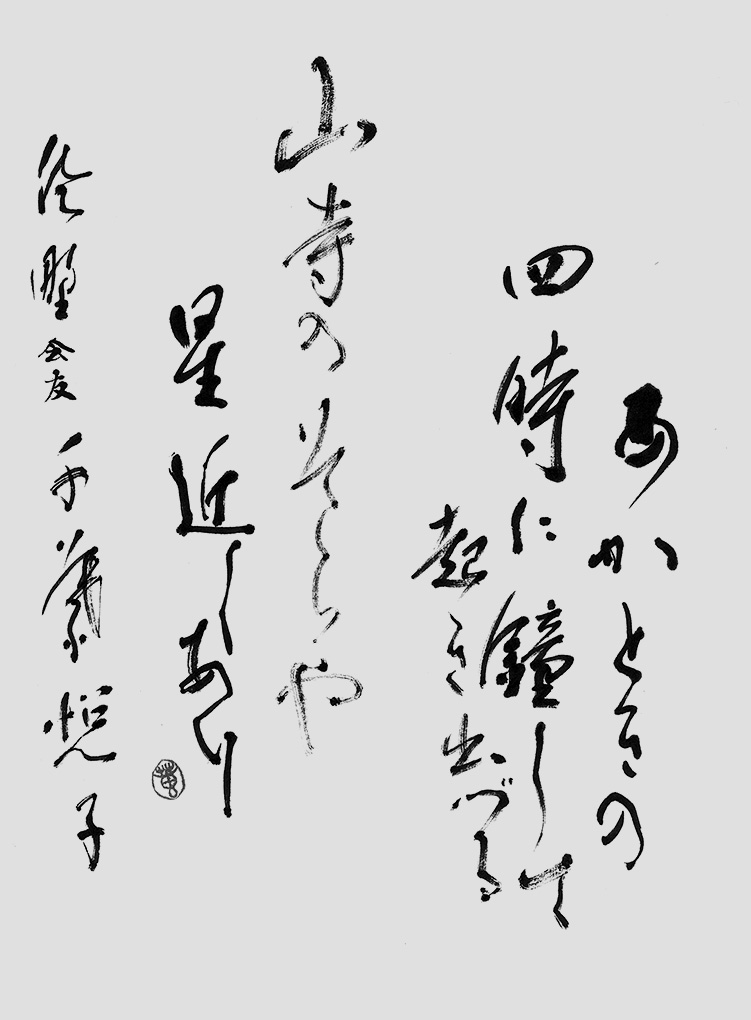 あかときの
四時に鐘して
起き出づる
山寺のそらや
星近くあり
会友 千葉悦子